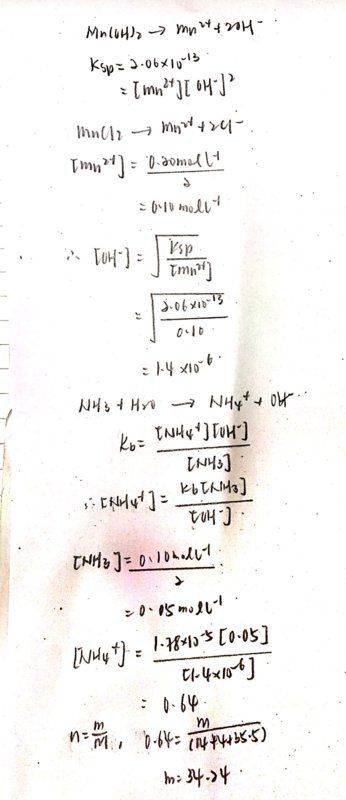 Mn(OH)2 → Mn2+ + 2OH-
Ksp = 2.06×10-13
= [Mn2+][OH-]2
MnCl2 → Mn2+ + 2Cl-
[Mn2+] = 0.20molL-1
2
= 0.10 molL-1
∴ [OH-] = √Ksp
[Mn2+]
= √2.06×10-13
0.10
= 1.4×10-6
NH3 + H2O → NH4+ + OH-
Kb = [NH4+][OH-]
[NH3]
∴ [NH4+] = Kb[NH3]
[OH-]
[NH3] = 0.10molL-1
2
= 0.05molL-1
[NH4+] = 1.78×10-5 [0.05]
[1.4×10-6]
= 0.64
n = m/M, 0.64 = m
(14+4+35.5)
m = 34.24